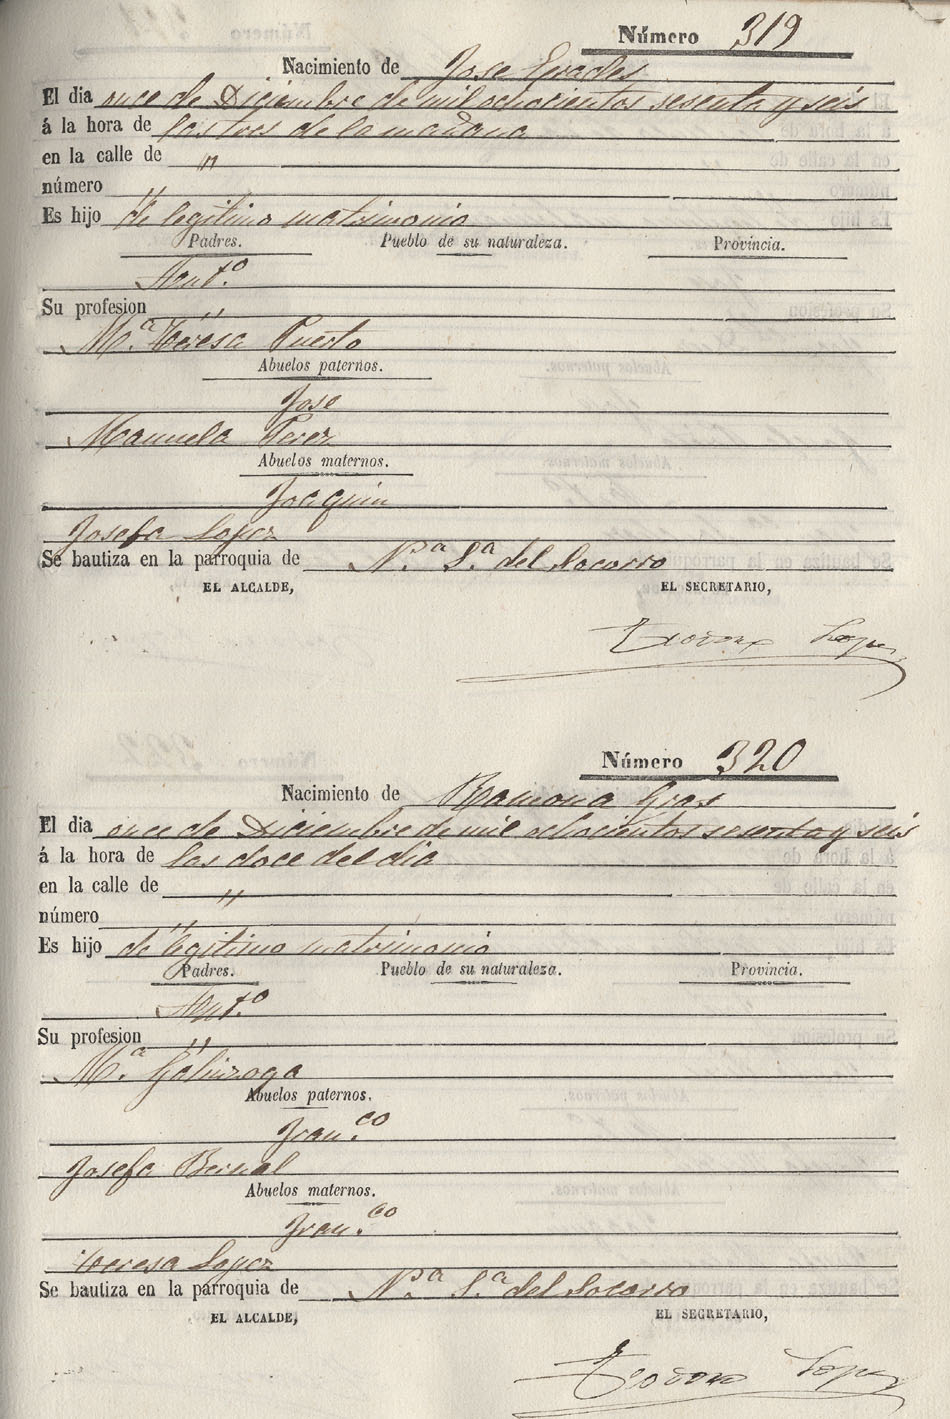 Número 319
Nacimiento de Jose Grades
El dia once de Diciembre de mil ochocientos sesenta y seis
á la hora de las tres de la mañana
en la calle de "
número "
Es hijo de legitimo matrimonio
Padres. Pueblo de su naturaleza. Provincia.
Ant.º
Su profesion "
M.ª Teresa Puerto
Abuelos paternos.
Jose
Manuela Perez
Abuelos maternos.
Joaquin
Josefa Lopez
Se bautiza en la parroquia de N.ª S.ª del Socorro
EL ALCALDE, EL SECRETARIO,
Lopez
Número 320
Nacimiento de Ramona Gras
El dia once de Diciembre de mil ochocientos sesenta y seis
á la hora de las doce del dia
en la calle de "
número "
Es hijo de legitimo matrimonio
Padres. Pueblo de su naturaleza. Provincia.
Ant.º
Su profesion "
M.ª
Abuelos paternos.
Fran.co
Josefa Bernal
Abuelos maternos.
Fran.co
Teresa Lopez
Se bautiza en la parroquia de N.ª S.ª del Socorro
EL ALCALDE, EL SECRETARIO,
Lopez